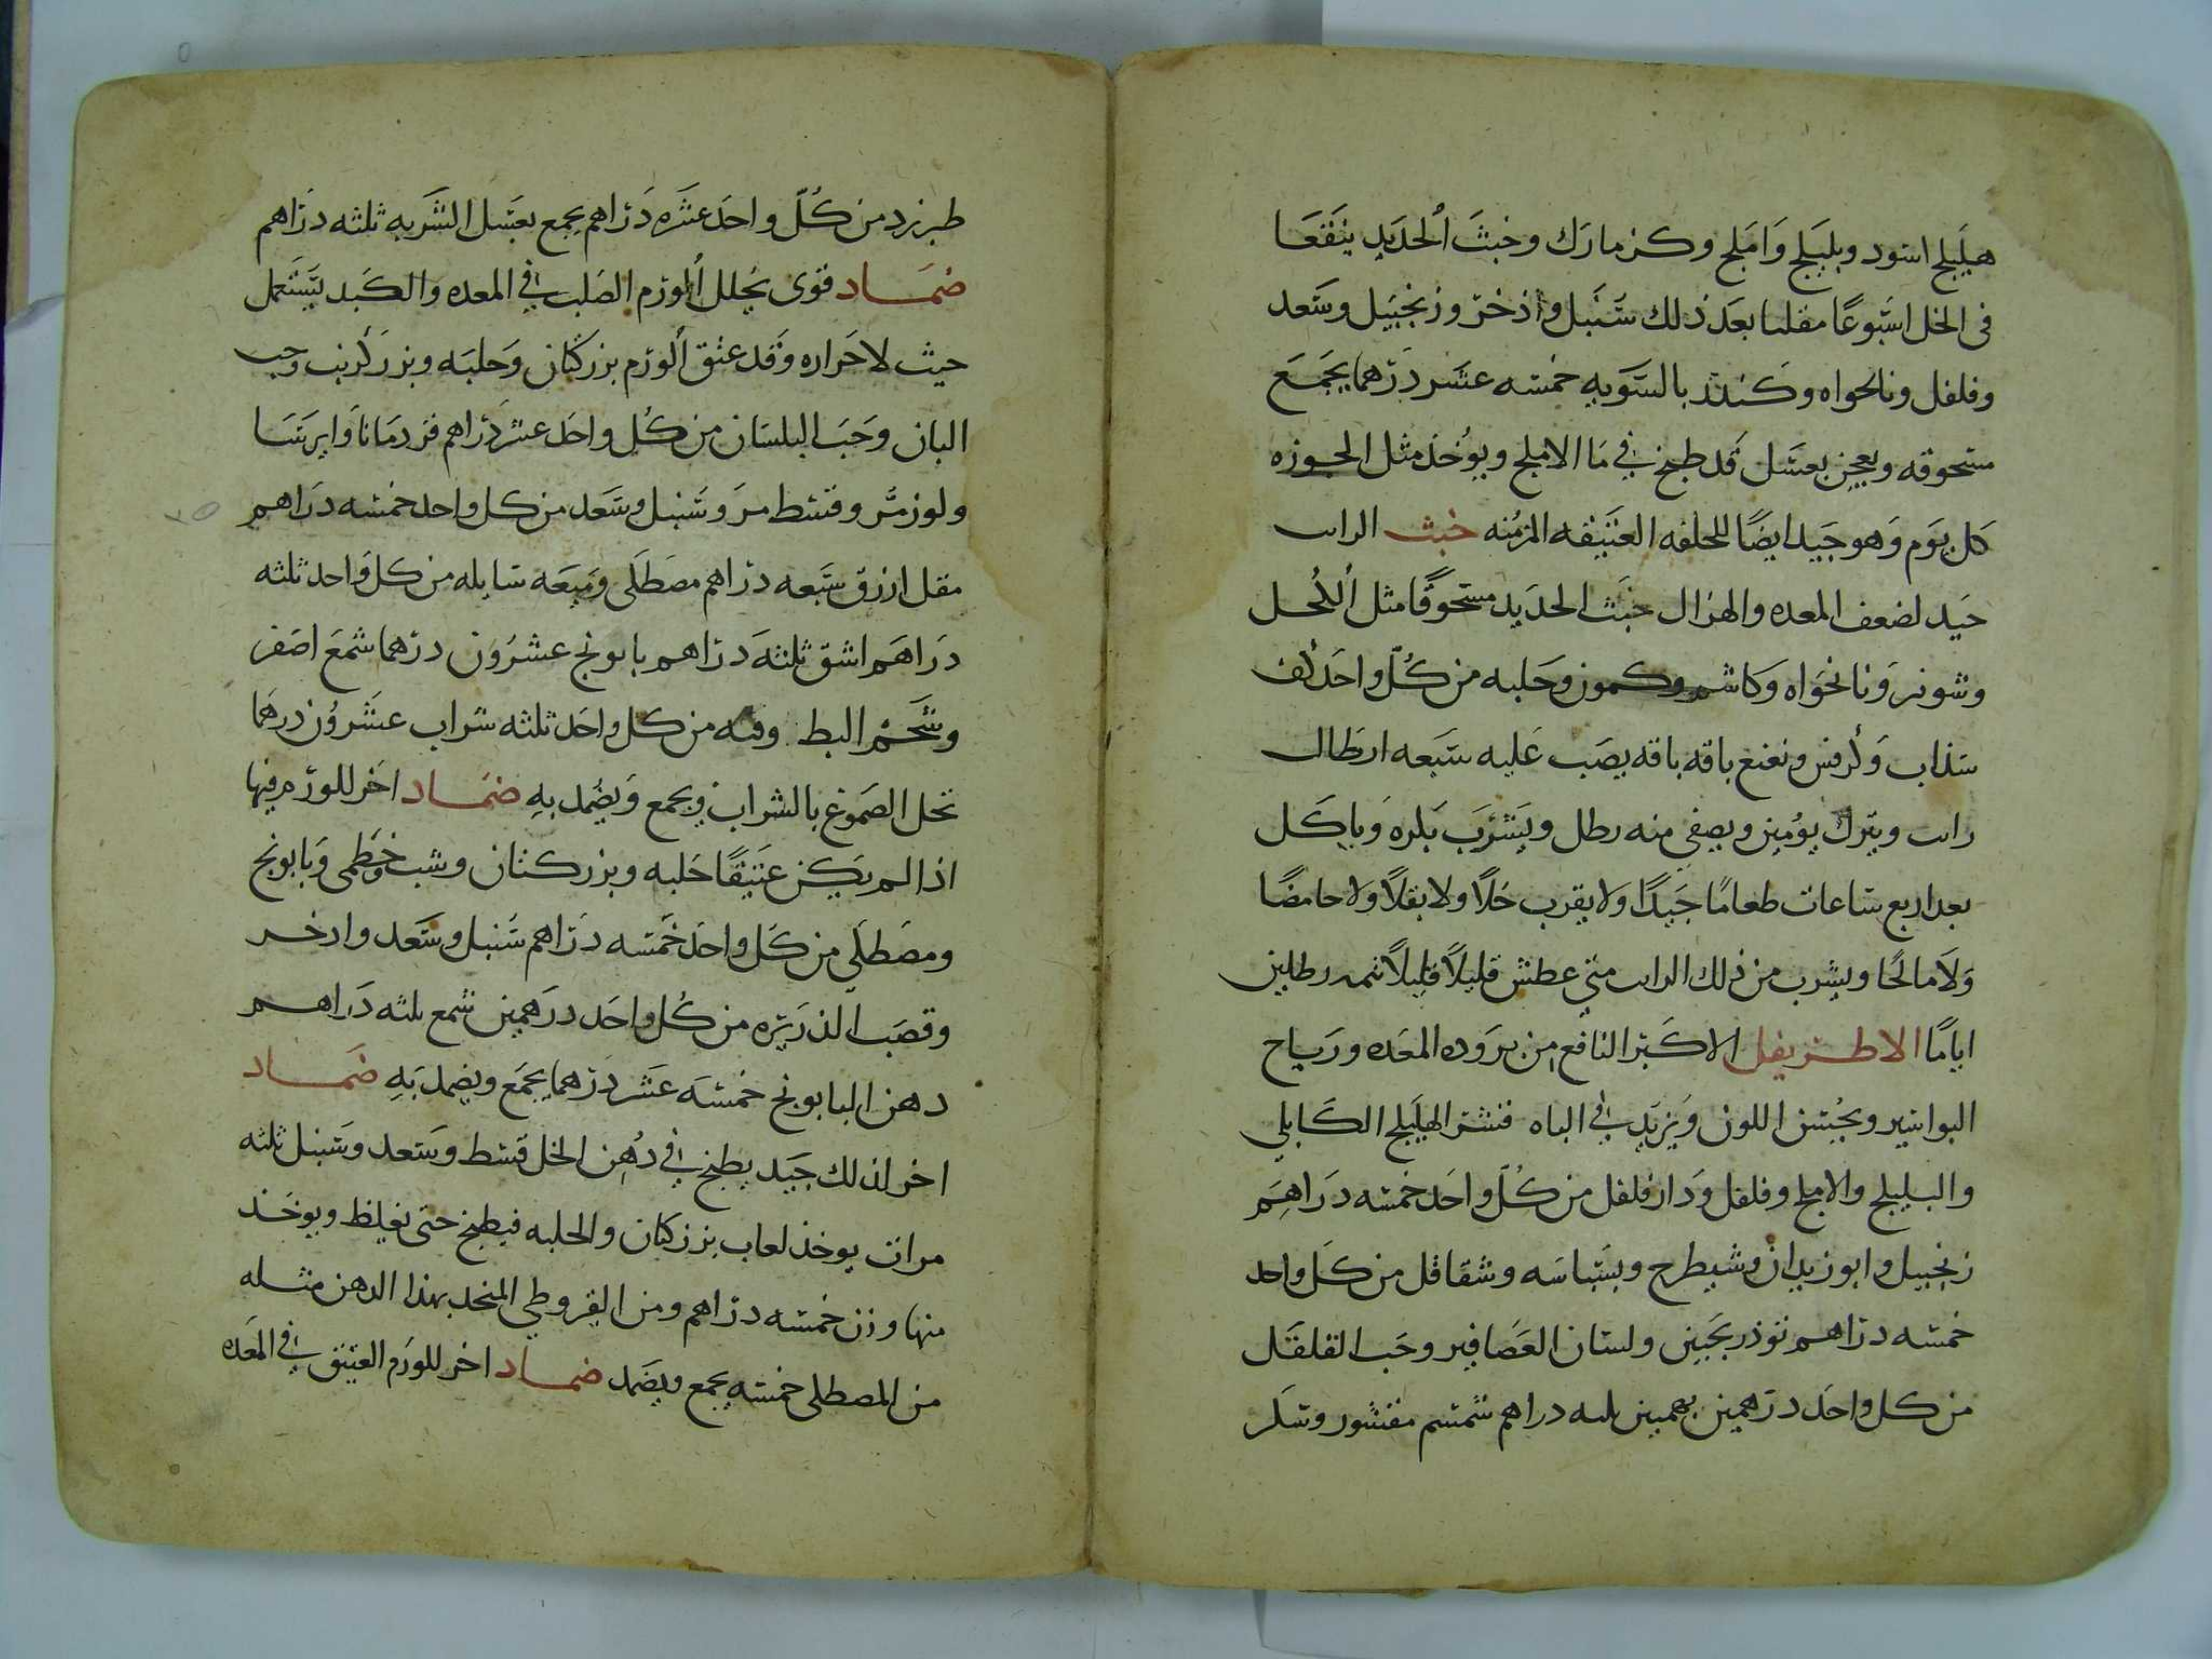 هيلَيلج اسود وبليَلج وَامَلج وكزمازك وخبثَ اُلحديدِ ينقَعَا
فى الخل اسبوعًا مقلىا بعَد ذلك سُنبَل واذخرَ وزنجبَيل وسَعد
وفلفل ونانحواه وكَندر بالسَويهِ خمسه عشَر دَرهما يجمَعَ
مسحوقه ويعجن بعسَل قَد طبخ فى مَا الاملج ويوُخذ مثل الجوزه
كل يوَم وَهو جَيد ايضًا للخلفه العَتيقه المزمُنه خبث الراىب
جَيد لضعف المعده والهزال خبَث الحدَيد مسحوقًا مثل اُلكُحل
وشونيز وَنانخوَاه وَكاشم وكمون وَحَلبه من كُلّ واحَد كف
سذاب وَكرفس ونعنع باقه باقه يصَب عَليه سَبَعه ارطَال
راىب ويترك يوُمين ويصفى منه رطل ويَشرَب بَكرهَ وَياكَل
بعد اربع سَاعات طعامًا جَيدًا وَلا يقرب خلًا ولا بقلًا ولا حامضًا
وَلَا مالحًا ويشرب من ذلك الراىب متى عطش قليلًا قليلًا تمه رطلين
ايامًا الاطريفل الاكَبر النافع من برَوده المعَده ورَياح
البواسير ويحُسن اللون وَيزيَد فى الباه قشر الهليلج الكَابلى
والبليلج والاملج وفلفل وَدارفلفل من كُلّ واحَد خمسه دَراهِم
زنجبيل وابوزيدان وشيطرج وبسَباسَه وشقاقل من كَل واحد
خمسه درَاهم توذريجَين ولسان العَصَافير وحَب القلقَل
من كل واحَد درَهمين بهمنين ىلىه دراهم سمسم مقشور وسكر
طبرزد من كُلّ واحَد عشَره دَرَاهم يجمع بعَسل الشَربه ثلثه درَاهم
ضمَاد قوى يحَلل اُلورَم الصَلب فى المعده والكَبد يسَتعمَل
حيث لا حَراره وَقد عتق اُلورَم بزر كَتان وَحلبَه وبزر كَرنب وحب
البان وحَبَ البلسَان من كُل واحَد عشر دَرَاهم قردمَانا وَايرسَا
ولوز مُر وقسط مرَ وسَنبل وسَعد من كل واحد خمسه درَاهم
مقل ازرق سَبعه درَاهم مصَطكَى وَميعَه سَايله من كل وَاحد ثلثه
دَراهَم اشق ثلثهَ درَاهم بابونج عشرُون درَهما شَمعَ اصَفر
وشحَم البط وقىه من كل واحَد ثلثه شراب عشَروُن درهمَا
تحَل الصَموغ بالشراب ويجمع وَيضُمد بهِ ضمَاد اخَر للورَم فيها
اذا لم يكَن عَتيقًا حَلبه وبزر كتان وشب خطَمى وَبابونج
ومصَطكَي من كَل واحَد خَمسه درَاهم سُنبل وسَعد واذخر
وقصَب الذرَيرَه من كُل واحَد درَهمين شَمع ىلثه دَراهم
دهن البابونج خمسَه عَشر درَهما يجمَع ويضمد بَهِ ضَمَاد
اخر لذلك جَيد يطبخ فى دُهِن الخل قسَط وسَعد وسَنبل ثلثه
مرات يوخذ لعاب بزر كتان والحلبه فيطبخ حتى يغيلظ ويوخَذ
منها وزن خمسَه درَاهم ومن القيروطي المتخذ بهذا الدهن مثله
من المصطكى خمسَه يجمع ويضَمد ضمَاد اخر للورَم العتيق فى المعَده